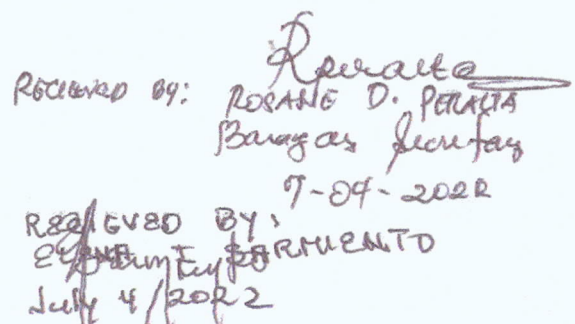 Rperalta
RECIEVED BY: ROSANE D. PERALTA
Barangay Secretary
7-04-2022
RECIEVED BY:
SARMIENTO
July 4/2022